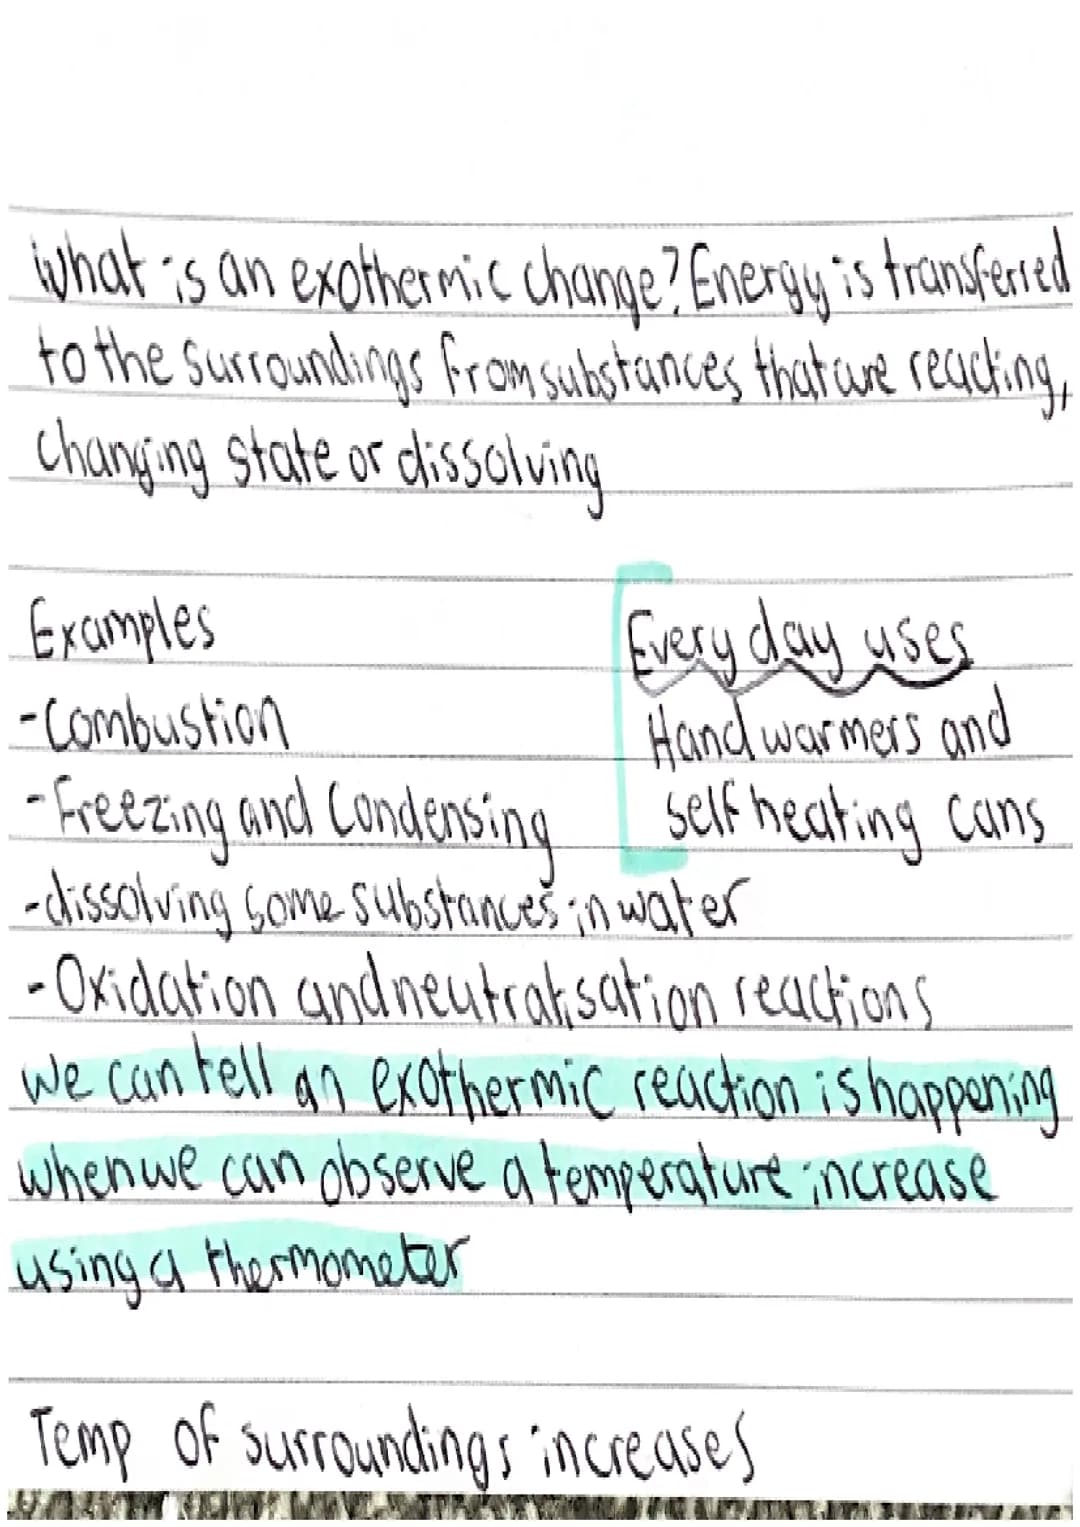 What is an exothermic change? Energy is transferred
to the surroundings from substances that are reacting,
changing state or dissolving
Examples
-Combustion
-Freezing and Condensing
-dissolving some substances in water
-Oxidation and neutralisation reactions
Every day uses
Hand warmers and
self heating cans
We can tell an exothermic reaction is happening
when we can observe a temperature increase
using a thermometer
Temp of surroundings increases